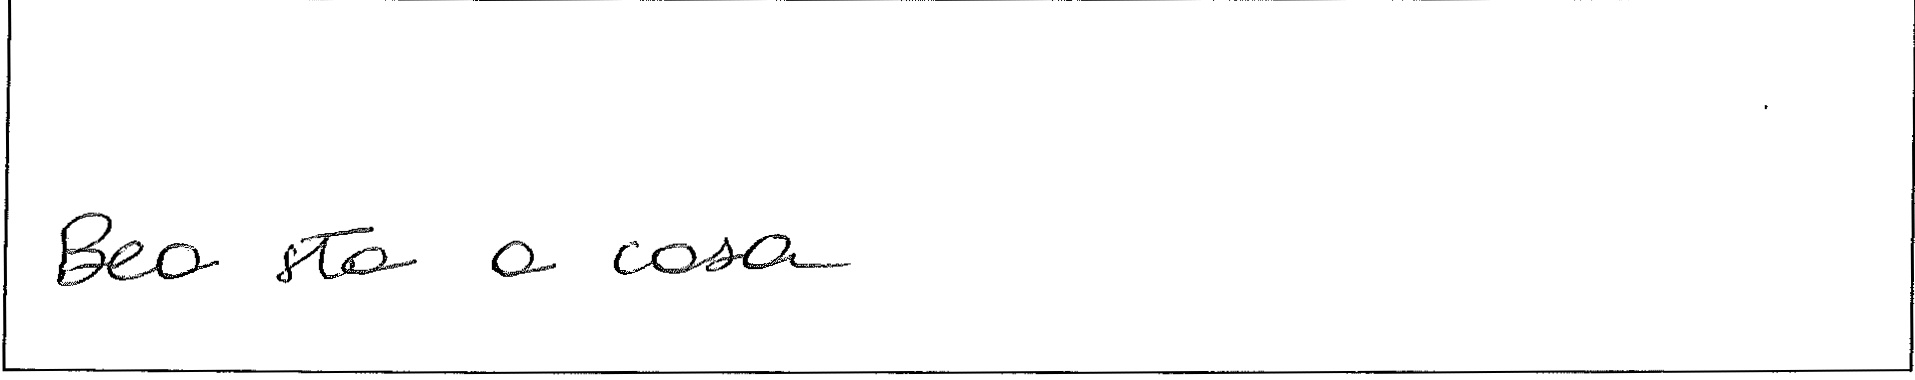 Bea sta a casa